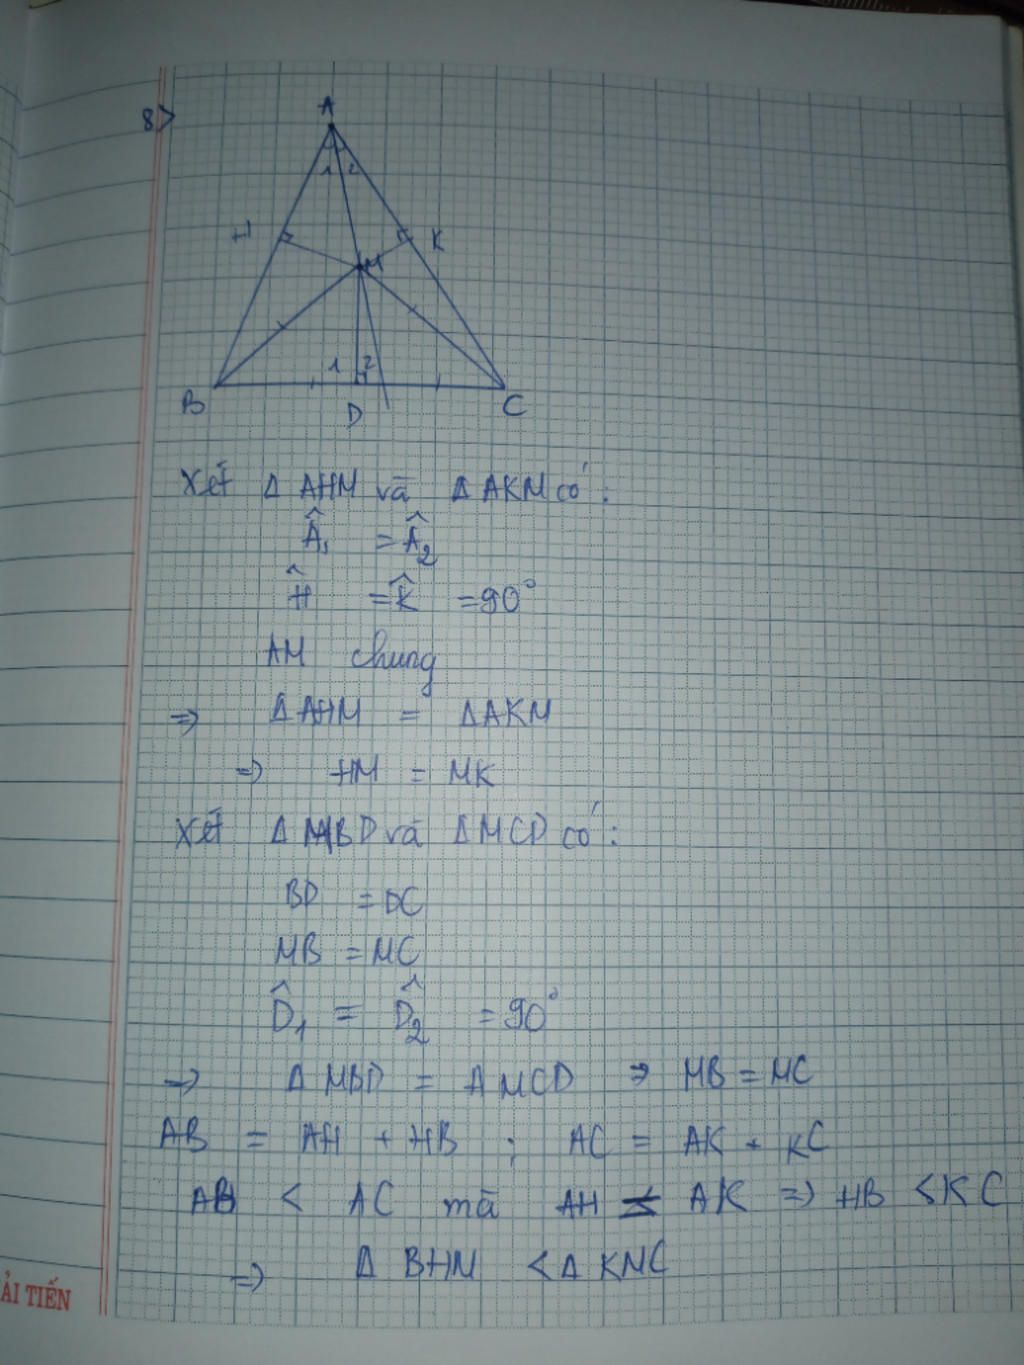 8>
A
1 2
H K
M
1 2
B D C
Xét Δ AHM và Δ AKM có:
Â₁ = Â₂
Ĥ = K̂ = 90°
AM chung
=> Δ AHM = Δ AKM
=> HM = MK
Xét Δ MBD và Δ MCD có:
BD = DC
MB = MC
D̂₁ = D̂₂ = 90°
=> Δ MBD = Δ MCD => MB = MC
AB = AH + HB ; AC = AK + KC
AB < AC mà AH = AK => HB < KC
=> Δ BHM < Δ KMC
ẢI TIẾN